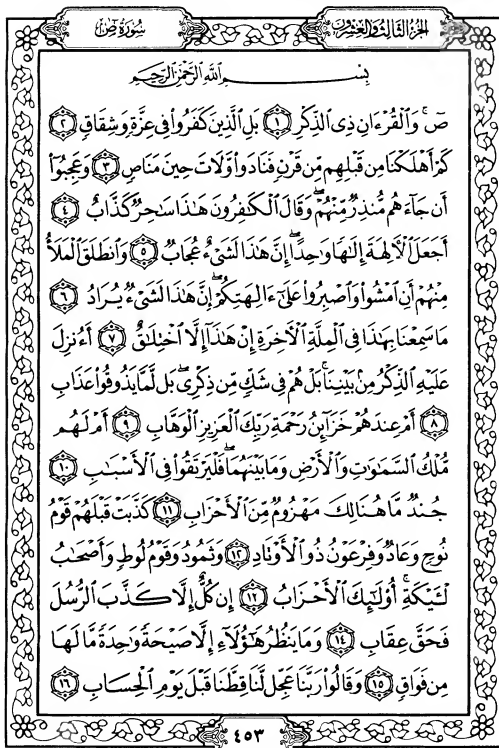 الجزء الثالث والعشرون
سورة ص
بِسْمِ اللَّهِ الرَّحْمَٰنِ الرَّحِيمِ
صٓ ۚ وَالْقُرْءَانِ ذِى الذِّكْرِ ١ بَلِ الَّذِينَ كَفَرُوا۟ فِى عِزَّةٍ وَشِقَاقٍ ٢
كَمْ أَهْلَكْنَا مِن قَبْلِهِم مِّن قَرْنٍ فَنَادَوا۟ وَّلَاتَ حِينَ مَنَاصٍ ٣ وَعَجِبُوٓا۟
أَن جَآءَهُم مُّنذِرٌ مِّنْهُمْ ۖ وَقَالَ الْكَٰفِرُونَ هَٰذَا سَٰحِرٌ كَذَّابٌ ٤
أَجَعَلَ الْءَالِهَةَ إِلَٰهًا وَٰحِدًا ۖ إِنَّ هَٰذَا لَشَىْءٌ عُجَابٌ ٥ وَانطَلَقَ الْمَلَأُ
مِنْهُمْ أَنِ امْشُوا۟ وَاصْبِرُوا۟ عَلَىٰٓ ءَالِهَتِكُمْ ۖ إِنَّ هَٰذَا لَشَىْءٌ يُرَادُ ٦
مَا سَمِعْنَا بِهَٰذَا فِى الْمِلَّةِ الْءَاخِرَةِ إِنْ هَٰذَآ إِلَّا اخْتِلَٰقٌ ٧ أَءُنزِلَ
عَلَيْهِ الذِّكْرُ مِنۢ بَيْنِنَا ۚ بَلْ هُمْ فِى شَكٍّ مِّن ذِكْرِى ۖ بَل لَّمَّا يَذُوقُوا۟ عَذَابِ
٨ أَمْ عِندَهُمْ خَزَآئِنُ رَحْمَةِ رَبِّكَ الْعَزِيزِ الْوَهَّابِ ٩ أَمْ لَهُم
مُّلْكُ السَّمَٰوَٰتِ وَالْأَرْضِ وَمَا بَيْنَهُمَا ۖ فَلْيَرْتَقُوا۟ فِى الْأَسْبَٰبِ ١٠
جُندٌ مَّا هُنَالِكَ مَهْزُومٌ مِّنَ الْأَحْزَابِ ١١ كَذَّبَتْ قَبْلَهُمْ قَوْمُ
نُوحٍ وَعَادٌ وَفِرْعَوْنُ ذُو الْأَوْتَادِ ١٢ وَثَمُودُ وَقَوْمُ لُوطٍ وَأَصْحَٰبُ
لْـَٔيْكَةِ ۚ أُو۟لَٰٓئِكَ الْأَحْزَابُ ١٣ إِن كُلٌّ إِلَّا كَذَّبَ الرُّسُلَ
فَحَقَّ عِقَابِ ١٤ وَمَا يَنظُرُ هَٰٓؤُلَآءِ إِلَّا صَيْحَةً وَٰحِدَةً مَّا لَهَا
مِن فَوَاقٍ ١٥ وَقَالُوا۟ رَبَّنَا عَجِّل لَّنَا قِطَّنَا قَبْلَ يَوْمِ الْحِسَابِ ١٦
٤٥٣